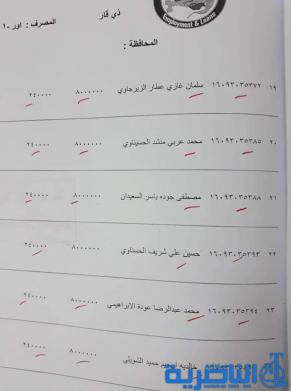 Employment & Loans
ذي قار
المصرف : اور -١
المحافظة :
١٩ ١٦٠٩٣٠٣٥٣٧٢ سلمان غازي عطار الزيرجاوي ٨٠٠٠٠٠٠ ٢٤٠٠٠٠
٢٠ ١٦٠٩٣٠٣٥٣٨٥ محمد عربي منشد الحسيناوي ٨٠٠٠٠٠٠ ٢٤٠٠٠٠
٢١ ١٦٠٩٣٠٣٥٣٨٨ مصطفى جوده ياسر السعيدان ٨٠٠٠٠٠٠ ٢٤٠٠٠٠
٢٢ ١٦٠٩٣٠٣٥٣٩٣ حسين علي شريف الحسناوي ٨٠٠٠٠٠٠ ٢٤٠٠٠٠
٢٣ ١٦٠٩٣٠٣٥٣٩٤ محمد عبدالرضا عودة الابراهيمي ٨٠٠٠٠٠٠ ٢٤٠٠٠٠
حميد الشويلي ٨٠٠٠٠٠٠ ٢٤٠٠٠٠
الناصرية